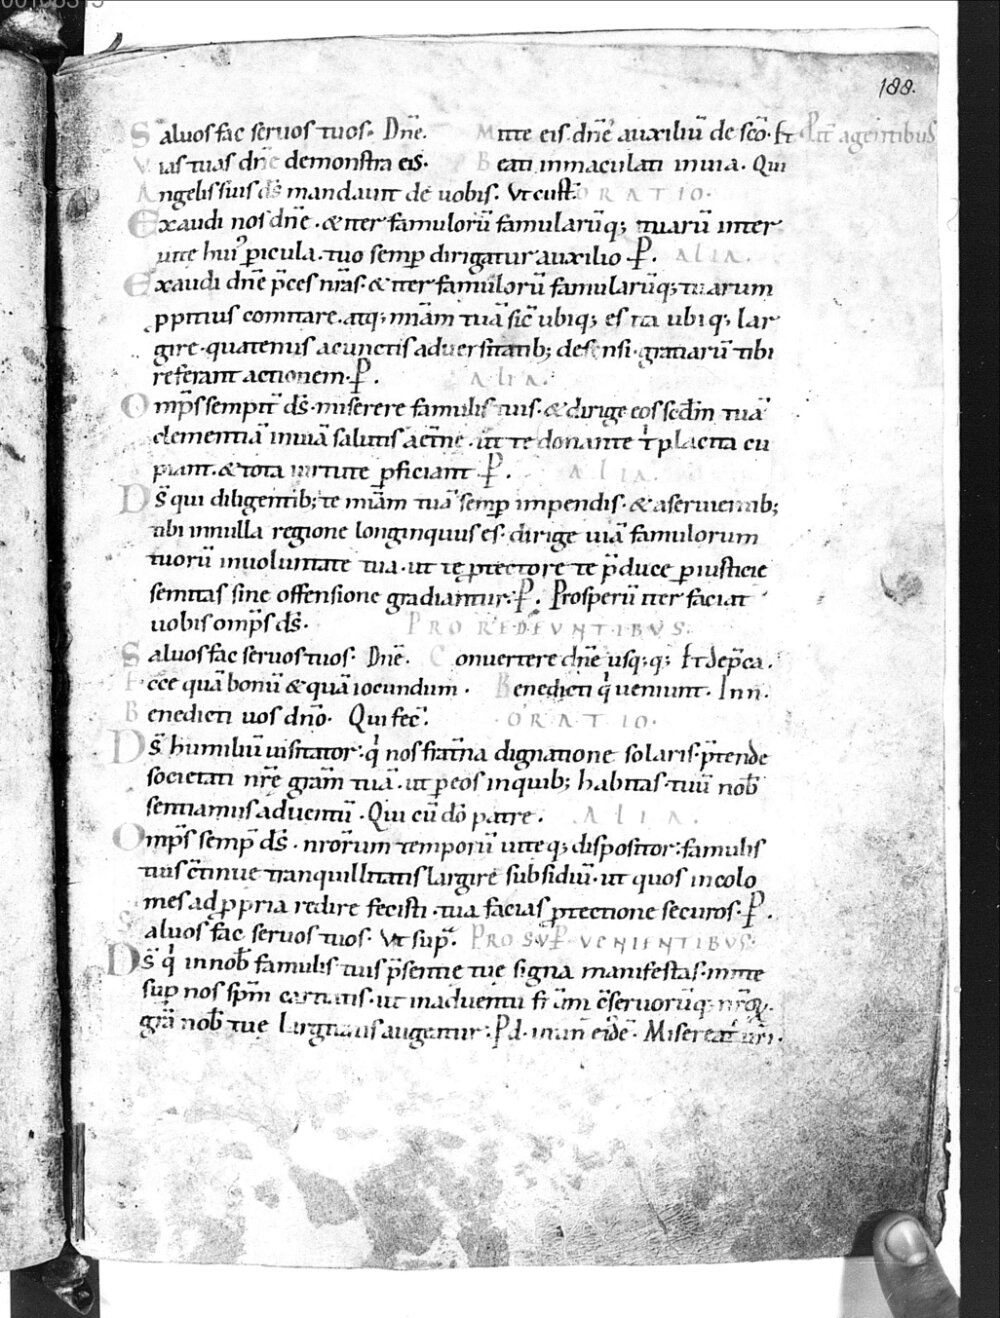 188.
Saluos fac seruos tuos. Dn̄e. Mitte eis dn̄e auxiliū de sc̄o. Et
Vias tuas dn̄e demonstra eis. Beati inmaculati inuia. Qui
Angelis suis d̄s mandauit de uobis. Vt cust̄. ORATIO.
Exaudi nos dn̄e. & iter famulorū famularūq; tuarū inter
uite hui᾽ p̲icula. tuo semp̲ dirigatur auxilio P̲. ALIA.
Exaudi dn̄e p̄ces nr̄as. & iter famulorū famularūq; tuarum
p̲pitius comitare. atq; miām tuā sic̄ ubiq; es ita ubiq; lar
gire. quatenus acunctis aduersitatib; defensi. gratiarū tibi
referant actionem. P̲. ALIA.
Omp̄s sempit̄ d̄s. miserere famulis tuis. & dirige eos scdm̄ tuā
clementiā inuiā salutis aet̄ne. ut te donante t̄ placita cu
piant. & tota uirtute p̲ficiant P̲. ALIA.
D̄s qui diligentib; te miām tuā semp̲ impendis. & aseruientib;
tibi innulla regione longinquus es. dirige uiā famulorum
tuorū inuoluntate tua. ut te p̲tectore te p̄duce p̲ iusticie
semitas sine offensione gradiantur. P̲. Prosperū iter faciat
uobis omp̄s d̄s. PRO REDEVNTIBVS.
Saluos fac seruos tuos. Dn̄e. Conuertere dn̄e usq;q; Et dep̄ca.
Ecce quā bonū & quā iocundum. Benedicti q̄ ueniunt. Inn̄.
Benedicti uos dn̄o. Qui fec̄. ORATIO.
D̄s humiliū uisitator. q̄ nos frat̄na dignatione solaris. p̄tende
societati nr̄e gram̄ tuā. ut p̲ eos inquib; habitas. tuū nob̄
sentiamus aduentū. Qui cū dō patre. ALIA.
Omp̄s semp̄ d̄s. nr̄orum temporū uiteq; dispositor. famulis
tuis c̄tinue tranquillitatis largire subsidiū. ut quos incolo
mes ad p̲pria redire fecisti. tua facias p̲tectione securos. P̲.
Saluos fac seruos tuos. Vt sup̄. PRO SVP̲VENIENTIBVS.
D̄s q̄ innob̄ famulis tuis p̄sentie tue signa manifestas. mitte
sup̲ nos sp̄m caritatis. ut inaduentu fr̄am c̄seruorūq; nr̄oꝝ.
grā nob̄ tue largitatis augeatur. P̲d.